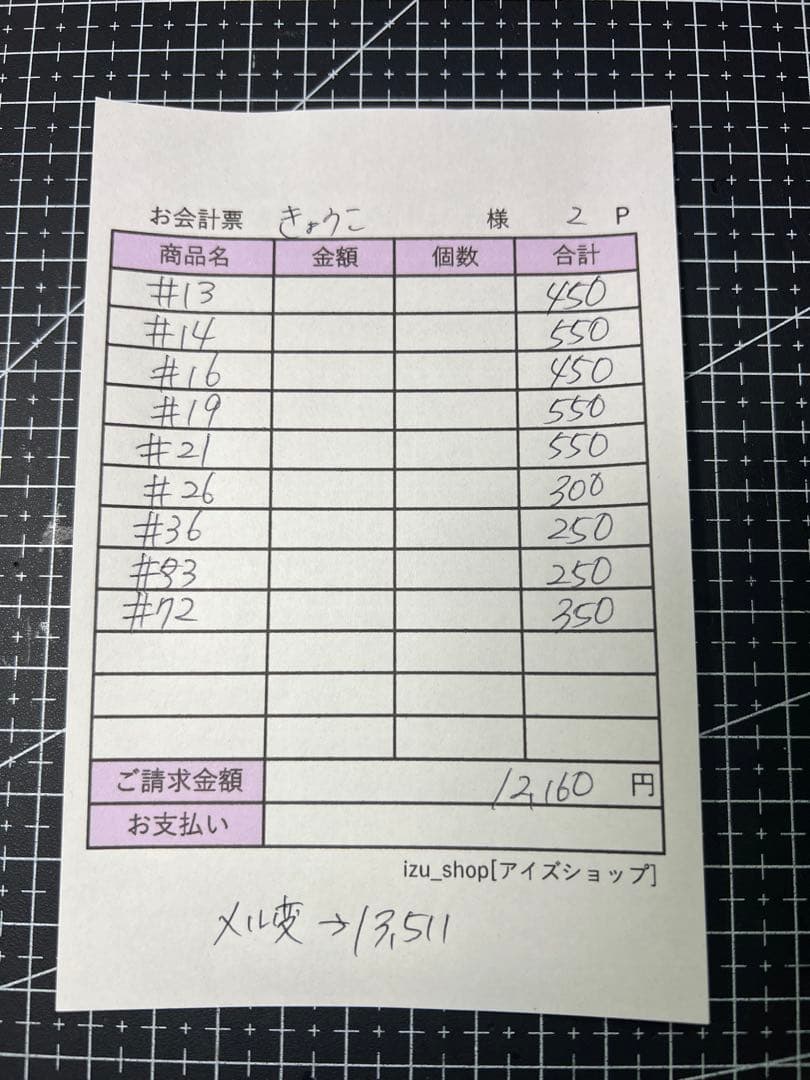 お会計票 きょうこ 様 2 P
商品名 金額 個数 合計
#13 450
#14 550
#16 450
#19 550
#21 550
#26 300
#36 250
#53 250
#72 350
ご請求金額 12,160 円
お支払い
izu_shop[アイズショップ]
メル変→13,511